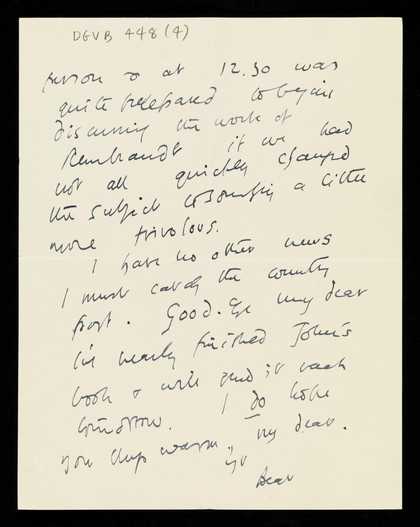 DGVB 448 (4)
person & at 12.30 was
quite prepared to begin
discussing the work of
Rembrandt if we had
not all quickly changed
the subject to something a little
more frivolous.
I have no other news
I must catch the country
post. Good-bye my dear
I've nearly finished John's
book & will send it back
tomorrow. I do hope
you keep warm, my dear.
yr
Bear